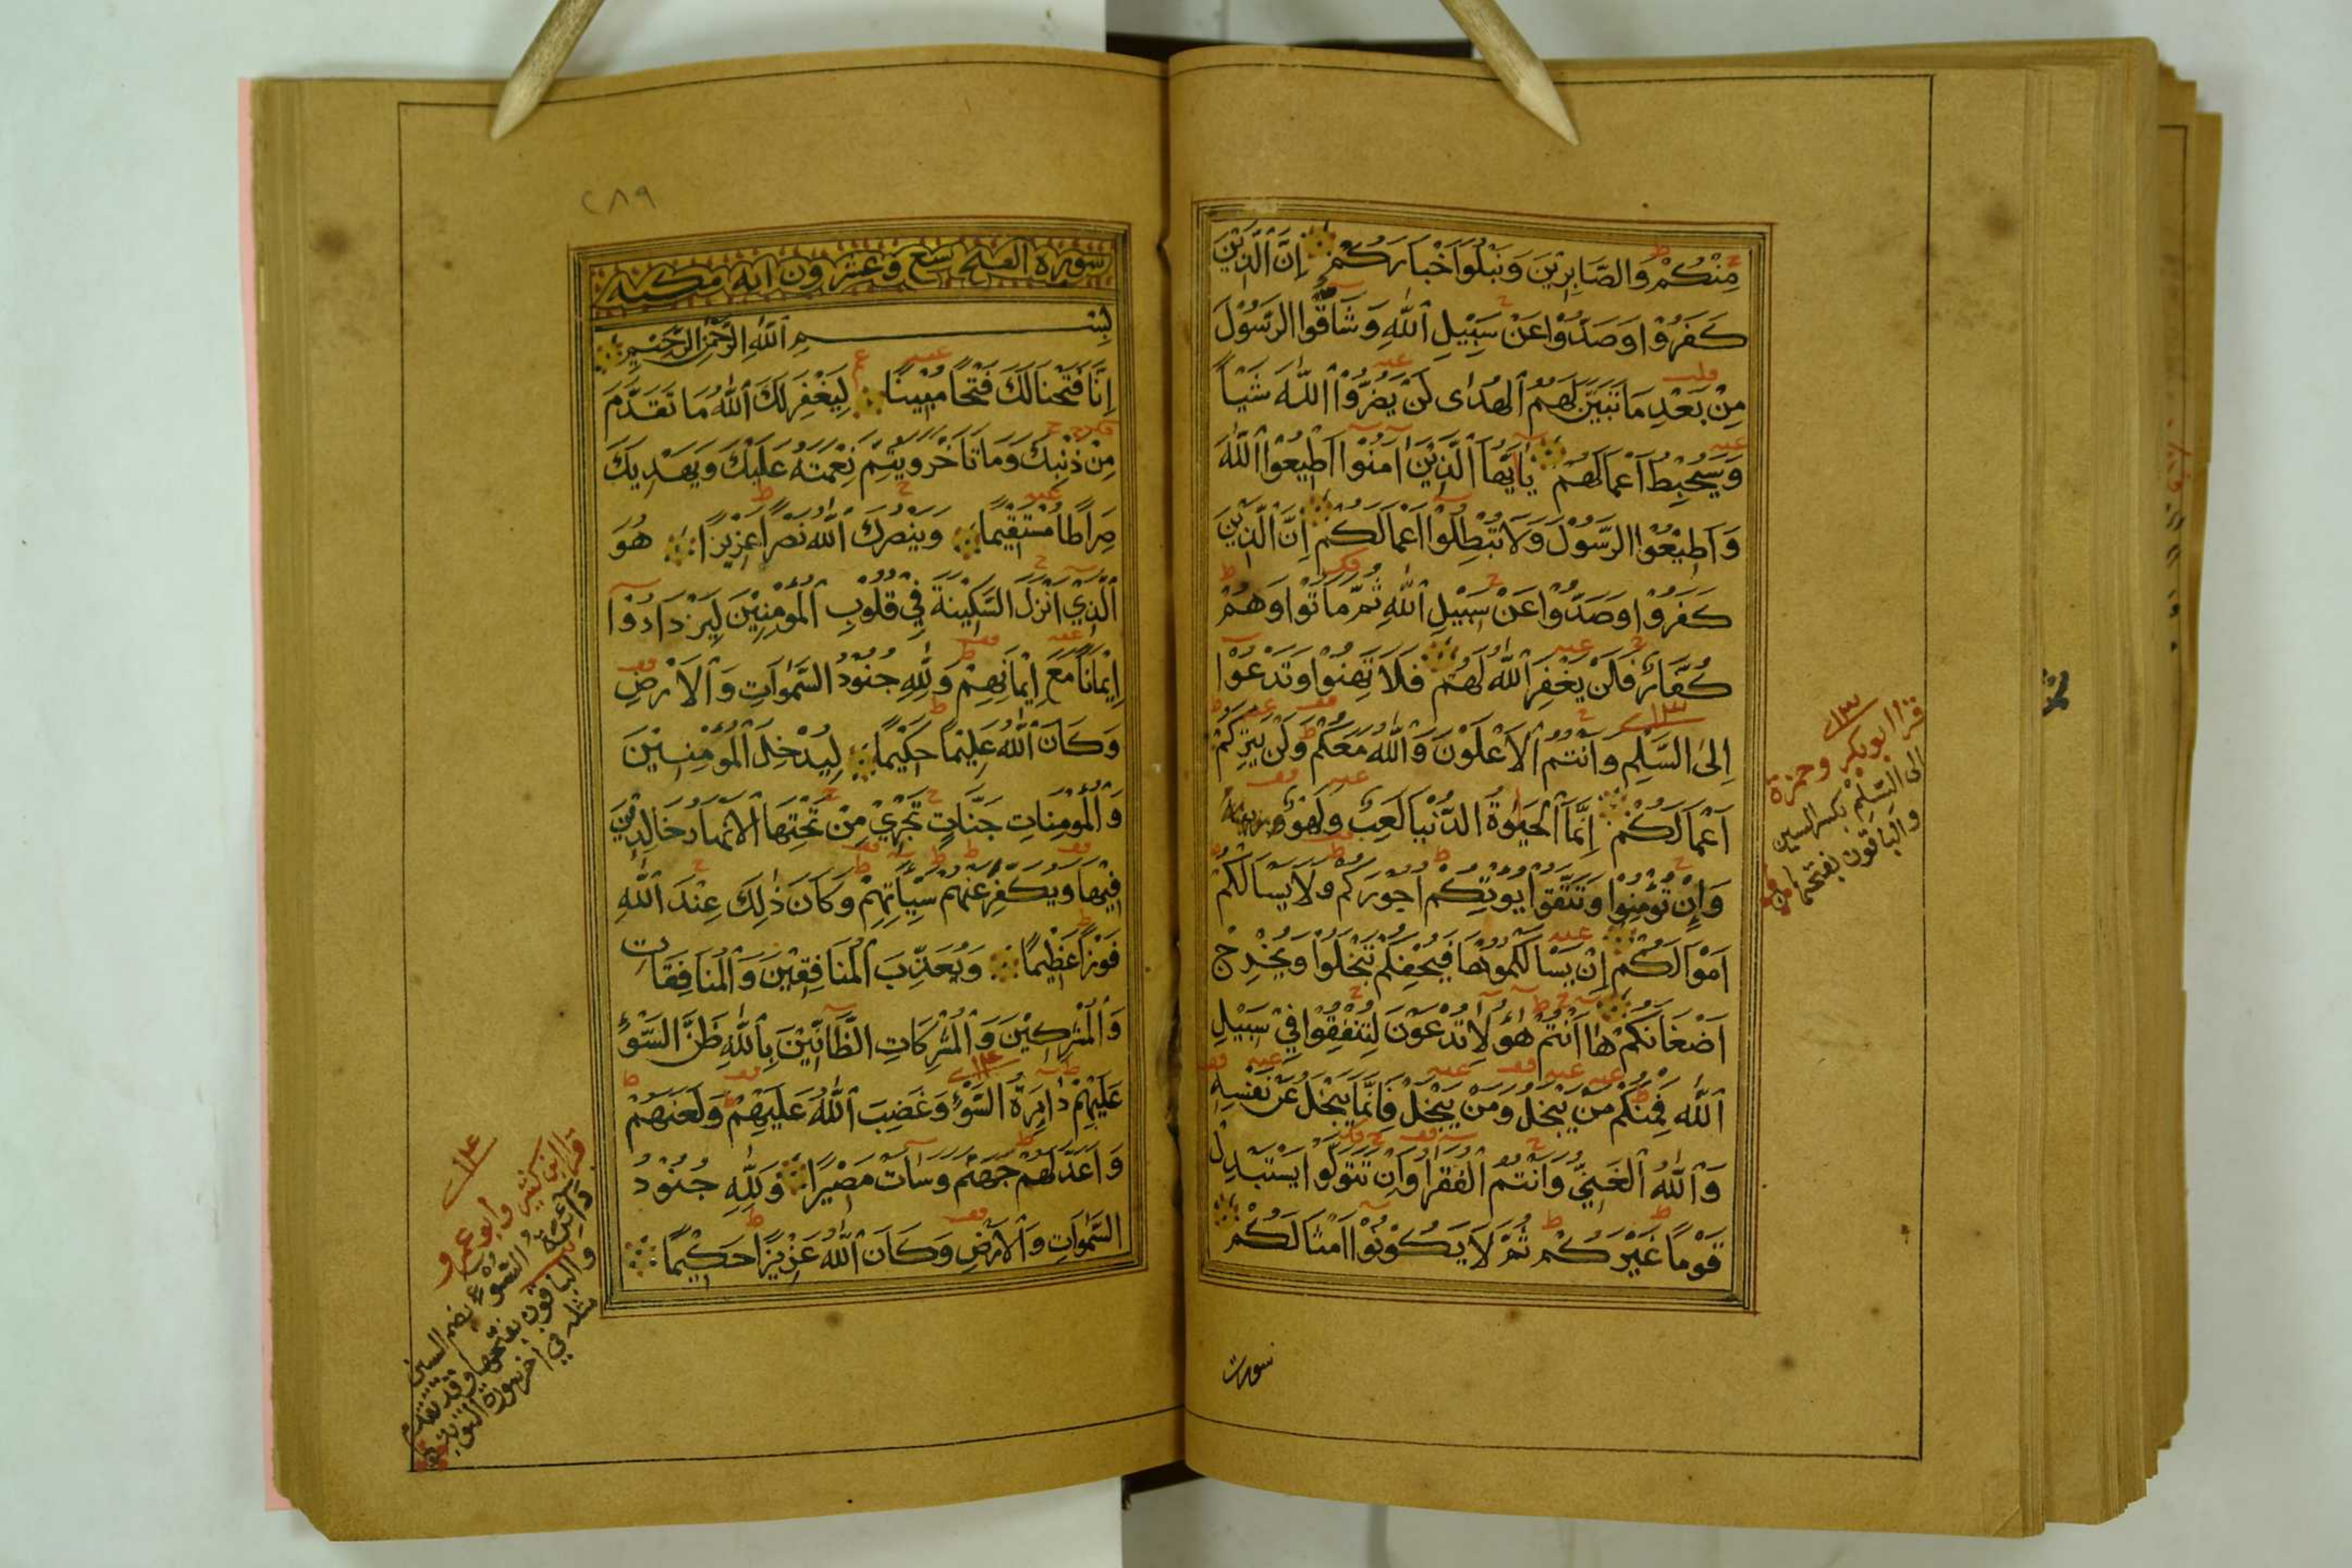 مِنْكُمْ وَالصَّابِرِيْنَ وَنَبْلُوَا أَخْبَارَكُمْ إِنَّ الَّذِيْنَ
كَفَرُوْا وَصَدُّوْا عَنْ سَبِيْلِ اللّٰهِ وَشَاقُّوا الرَّسُوْلَ
مِنْ بَعْدِ مَا تَبَيَّنَ لَهُمُ الْهُدٰى لَنْ يَضُرُّوْا اللّٰهَ شَيْأً
وَسَيُحْبِطُ أَعْمَالَهُمْ يَا أَيُّهَا الَّذِيْنَ اٰمَنُوْا أَطِيْعُوْا اللّٰهَ
وَأَطِيْعُوْا الرَّسُوْلَ وَلَا تُبْطِلُوْا أَعْمَالَكُمْ إِنَّ الَّذِيْنَ
كَفَرُوْا وَصَدُّوْا عَنْ سَبِيْلِ اللّٰهِ ثُمَّ مَاتُوْا وَهُمْ
كُفَّارٌ فَلَنْ يَغْفِرَ اللّٰهُ لَهُمْ فَلَا تَهِنُوْا وَتَدْعُوْا
إِلَى السَّلْمِ وَأَنْتُمُ الْأَعْلَوْنَ وَاللّٰهُ مَعَكُمْ وَلَنْ يَتِرَكُمْ
أَعْمَالَكُمْ إِنَّمَا الْحَيٰوةُ الدُّنْيَا لَعِبٌ وَلَهْوٌ
وَإِنْ تُؤْمِنُوْا وَتَتَّقُوْا يُؤْتِكُمْ أُجُوْرَكُمْ وَلَا يَسْأَلْكُمْ
أَمْوَالَكُمْ إِنْ يَسْأَلْكُمُوْهَا فَيُحْفِكُمْ تَبْخَلُوْا وَيُخْرِجْ
أَضْغَانَكُمْ هَا أَنْتُمْ هٰؤُلَاءِ تُدْعَوْنَ لِتُنْفِقُوْا فِيْ سَبِيْلِ
اللّٰهِ فَمِنْكُمْ مَنْ يَبْخَلُ وَمَنْ يَبْخَلْ فَإِنَّمَا يَبْخَلُ عَنْ نَفْسِهِ
وَاللّٰهُ الْغَنِيُّ وَأَنْتُمُ الْفُقَرَاءُ وَإِنْ تَتَوَلَّوْا يَسْتَبْدِلْ
قَوْمًا غَيْرَكُمْ ثُمَّ لَا يَكُوْنُوْا أَمْثَالَكُمْ
سورت
قرأ ابوبكر وحمزة
الى السِّلْمِ بكسر السين
والباقون بفتحها
٢٨٩
سورة الفتح تسع وعشرون اية مكية
بِسْمِ اللّٰهِ الرَّحْمٰنِ الرَّحِيْمِ
إِنَّا فَتَحْنَا لَكَ فَتْحًا مُبِيْنًا لِيَغْفِرَ لَكَ اللّٰهُ مَا تَقَدَّمَ
مِنْ ذَنْبِكَ وَمَا تَأَخَّرَ وَيُتِمَّ نِعْمَتَهُ عَلَيْكَ وَيَهْدِيَكَ
صِرَاطًا مُسْتَقِيْمًا وَيَنْصُرَكَ اللّٰهُ نَصْرًا عَزِيْزًا هُوَ
الَّذِيْ أَنْزَلَ السَّكِيْنَةَ فِيْ قُلُوْبِ الْمُؤْمِنِيْنَ لِيَزْدَادُوْا
إِيْمَانًا مَعَ إِيْمَانِهِمْ وَلِلّٰهِ جُنُوْدُ السَّمٰوَاتِ وَالْأَرْضِ
وَكَانَ اللّٰهُ عَلِيْمًا حَكِيْمًا لِيُدْخِلَ الْمُؤْمِنِيْنَ
وَالْمُؤْمِنَاتِ جَنَّاتٍ تَجْرِيْ مِنْ تَحْتِهَا الْأَنْهَارُ خَالِدِيْنَ
فِيْهَا وَيُكَفِّرَ عَنْهُمْ سَيِّأٰتِهِمْ وَكَانَ ذٰلِكَ عِنْدَ اللّٰهِ
فَوْزًا عَظِيْمًا وَيُعَذِّبَ الْمُنَافِقِيْنَ وَالْمُنَافِقَاتِ
وَالْمُشْرِكِيْنَ وَالْمُشْرِكَاتِ الظَّانِّيْنَ بِاللّٰهِ ظَنَّ السَّوْءِ
عَلَيْهِمْ دَائِرَةُ السَّوْءِ وَغَضِبَ اللّٰهُ عَلَيْهِمْ وَلَعَنَهُمْ
وَأَعَدَّ لَهُمْ جَهَنَّمَ وَسَاءَتْ مَصِيْرًا وَلِلّٰهِ جُنُوْدُ
السَّمٰوَاتِ وَالْأَرْضِ وَكَانَ اللّٰهُ عَزِيْزًا حَكِيْمًا
قرأ ابن كثير وأبو عمرو
دائرة السُّوْءِ بضم السين
والباقون بفتحها وقد تقدم
مثله في اخر سورة التوبة